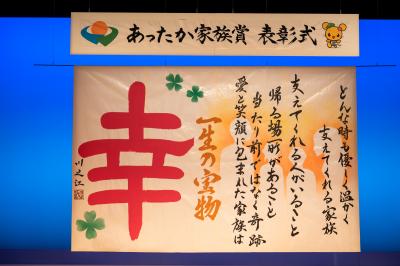 あったか家族賞 表彰式
どんな時も優しく温かく
支えてくれる家族
支えてくれる人がいること
帰る場所があること
当たり前ではなく奇跡
愛と笑顔に包まれた家族は
一生の宝物
幸
川之江